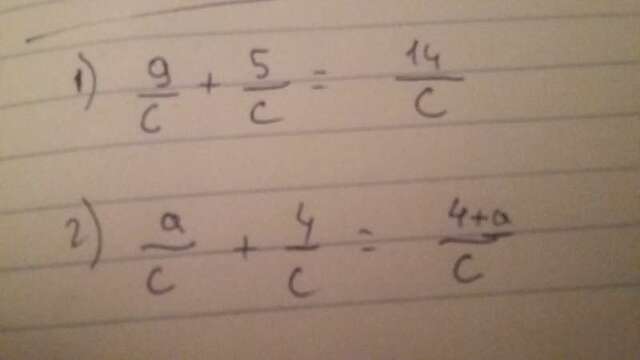 1) 9/c + 5/c = 14/c
2) a/c + 4/c = 4+a/c